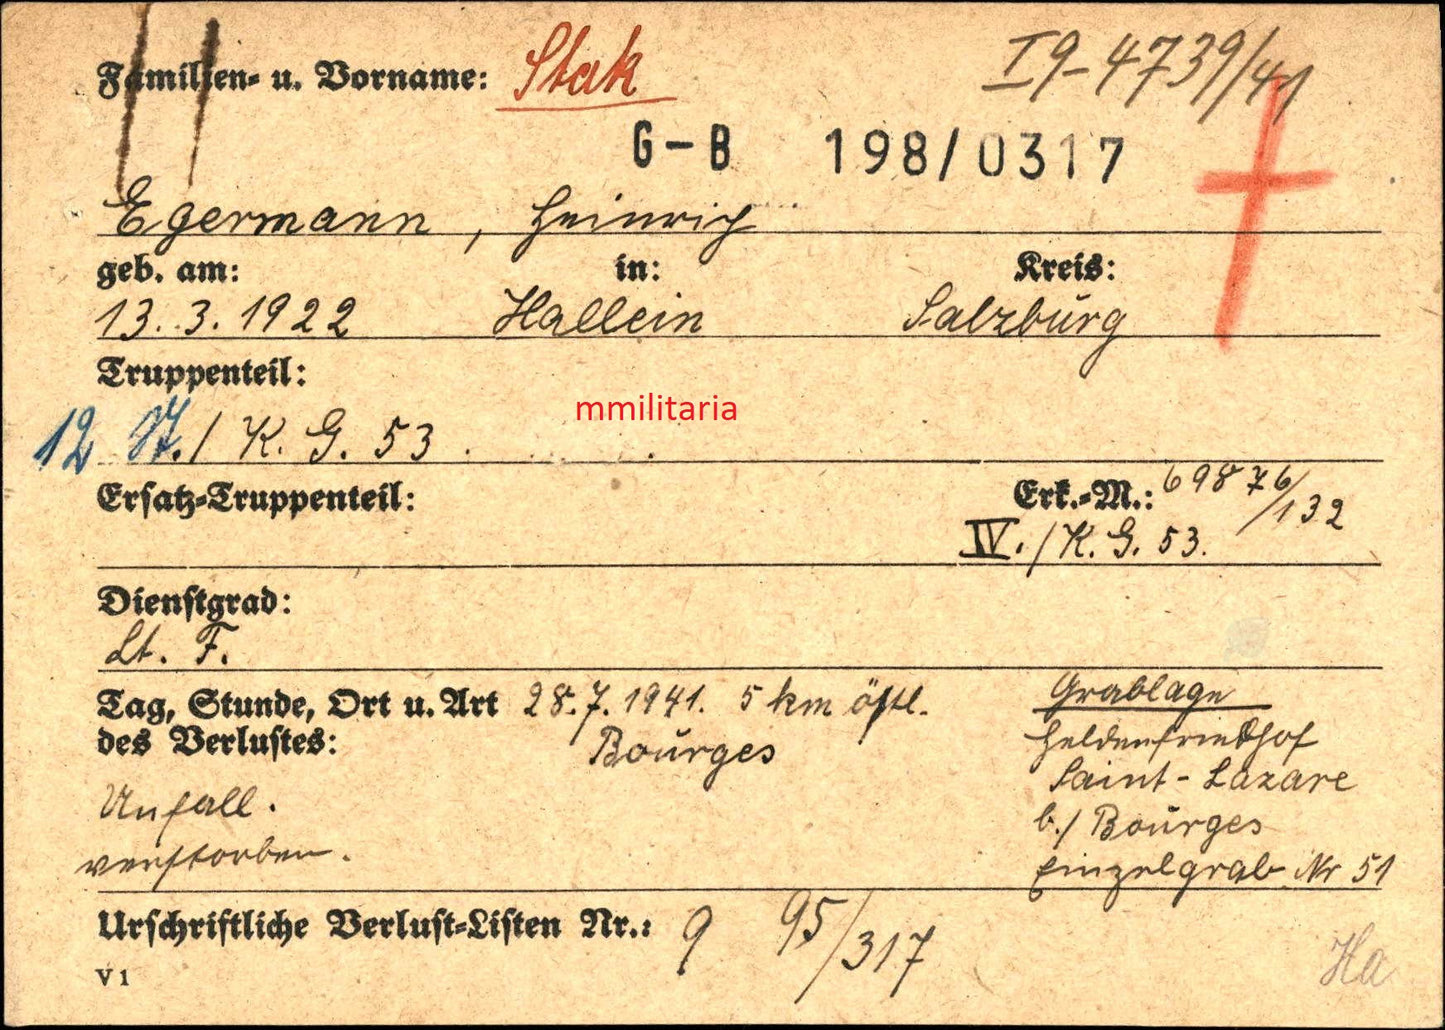 Familien- u. Vorname: Stak I9-4739/41
G-B 198/0317
Egermann, Heinrich
geb. am: in: Kreis:
13.3.1922 Hallein Salzburg
Truppenteil:
mmilitaria
12 ./K.G. 53.
Ersatz-Truppenteil: Erk.-M.: 69876/132
IV./K.G. 53.
Dienstgrad:
Lt. F.
Tag, Stunde, Ort u. Art 28.7.1941. 5 km östl. Grablage
des Verlustes: Bourges Heldenfriedhof
Saint-Lazare
Unfall. b./Bourges
verstorben. Einzelgrab Nr 51
Urschriftliche Verlust-Listen Nr.: 9 95/317
V 1 Ha